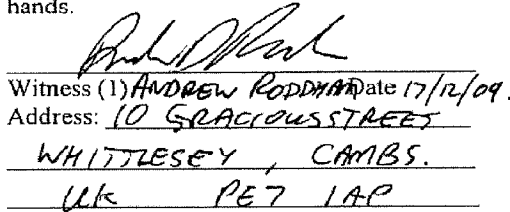 hands.
Witness (1) ANDREW RODDHAM Date 17/12/09.
Address: 10 GRACIOUS STREET
WHITTLESEY, CAMBS.
UK PE7 1AP